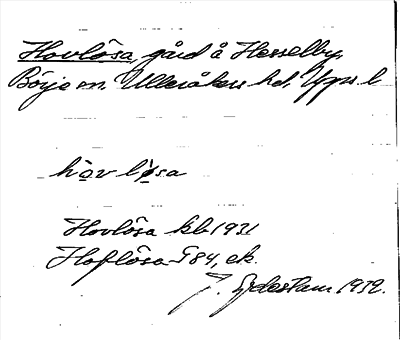 Hovlösa, gård å Hesselby,
Börje sn. Ulleråkers hd, Upps. l.
hòv lø̀sa
Hovlösa kb 1931
Hoflösa G 84, ek.
J. Sydestam 1932.